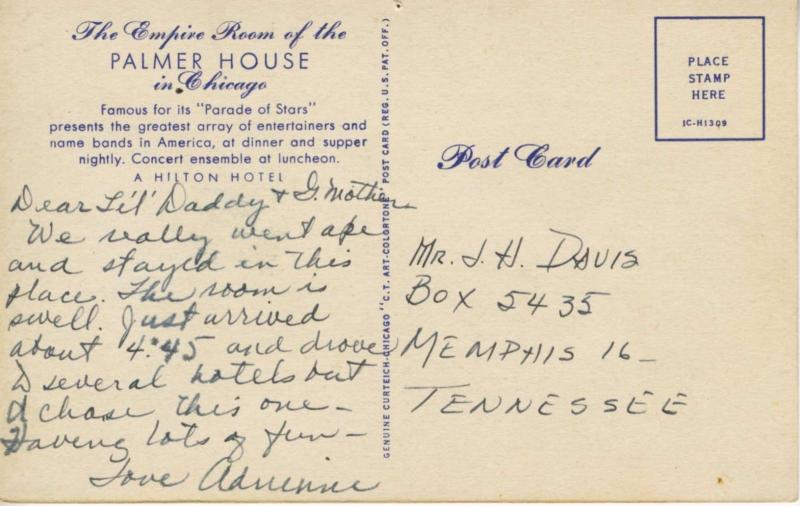 The Empire Room of the
PALMER HOUSE
in Chicago
Famous for its "Parade of Stars"
presents the greatest array of entertainers and
name bands in America, at dinner and supper
nightly. Concert ensemble at luncheon.
A HILTON HOTEL
Dear Li'l' Daddy & G. Mother
We really went ape
and stayed in this
place. The room is
swell. Just arrived
about 4:45 and drove
to several hotels but
I chose this one—
Having lots of fun—
Love Adrienne
GENUINE CURTEICH-CHICAGO "C.T. ART-COLORTONE" POST CARD (REG. U.S. PAT. OFF.)
PLACE
STAMP
HERE
1C-H1309
Post Card
MR. J. H. DAVIS
BOX 5435
MEMPHIS 16—
TENNESSEE